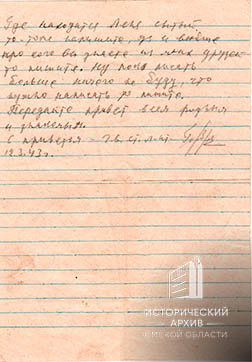 Где находится Леня
то тоже напишите, да и вообще
про кого вы знаете из моих друзей
то пишите. Ну пока писать
больше ничего не буду, что
нужно написать то пишите.
Передайте привет всем родным
и знакомым.
С приветом – Гв. ст. л-нт
12.3.43 г.
ИСТОРИЧЕСКИЙ
АРХИВ
ОМСКОЙ ОБЛАСТИ